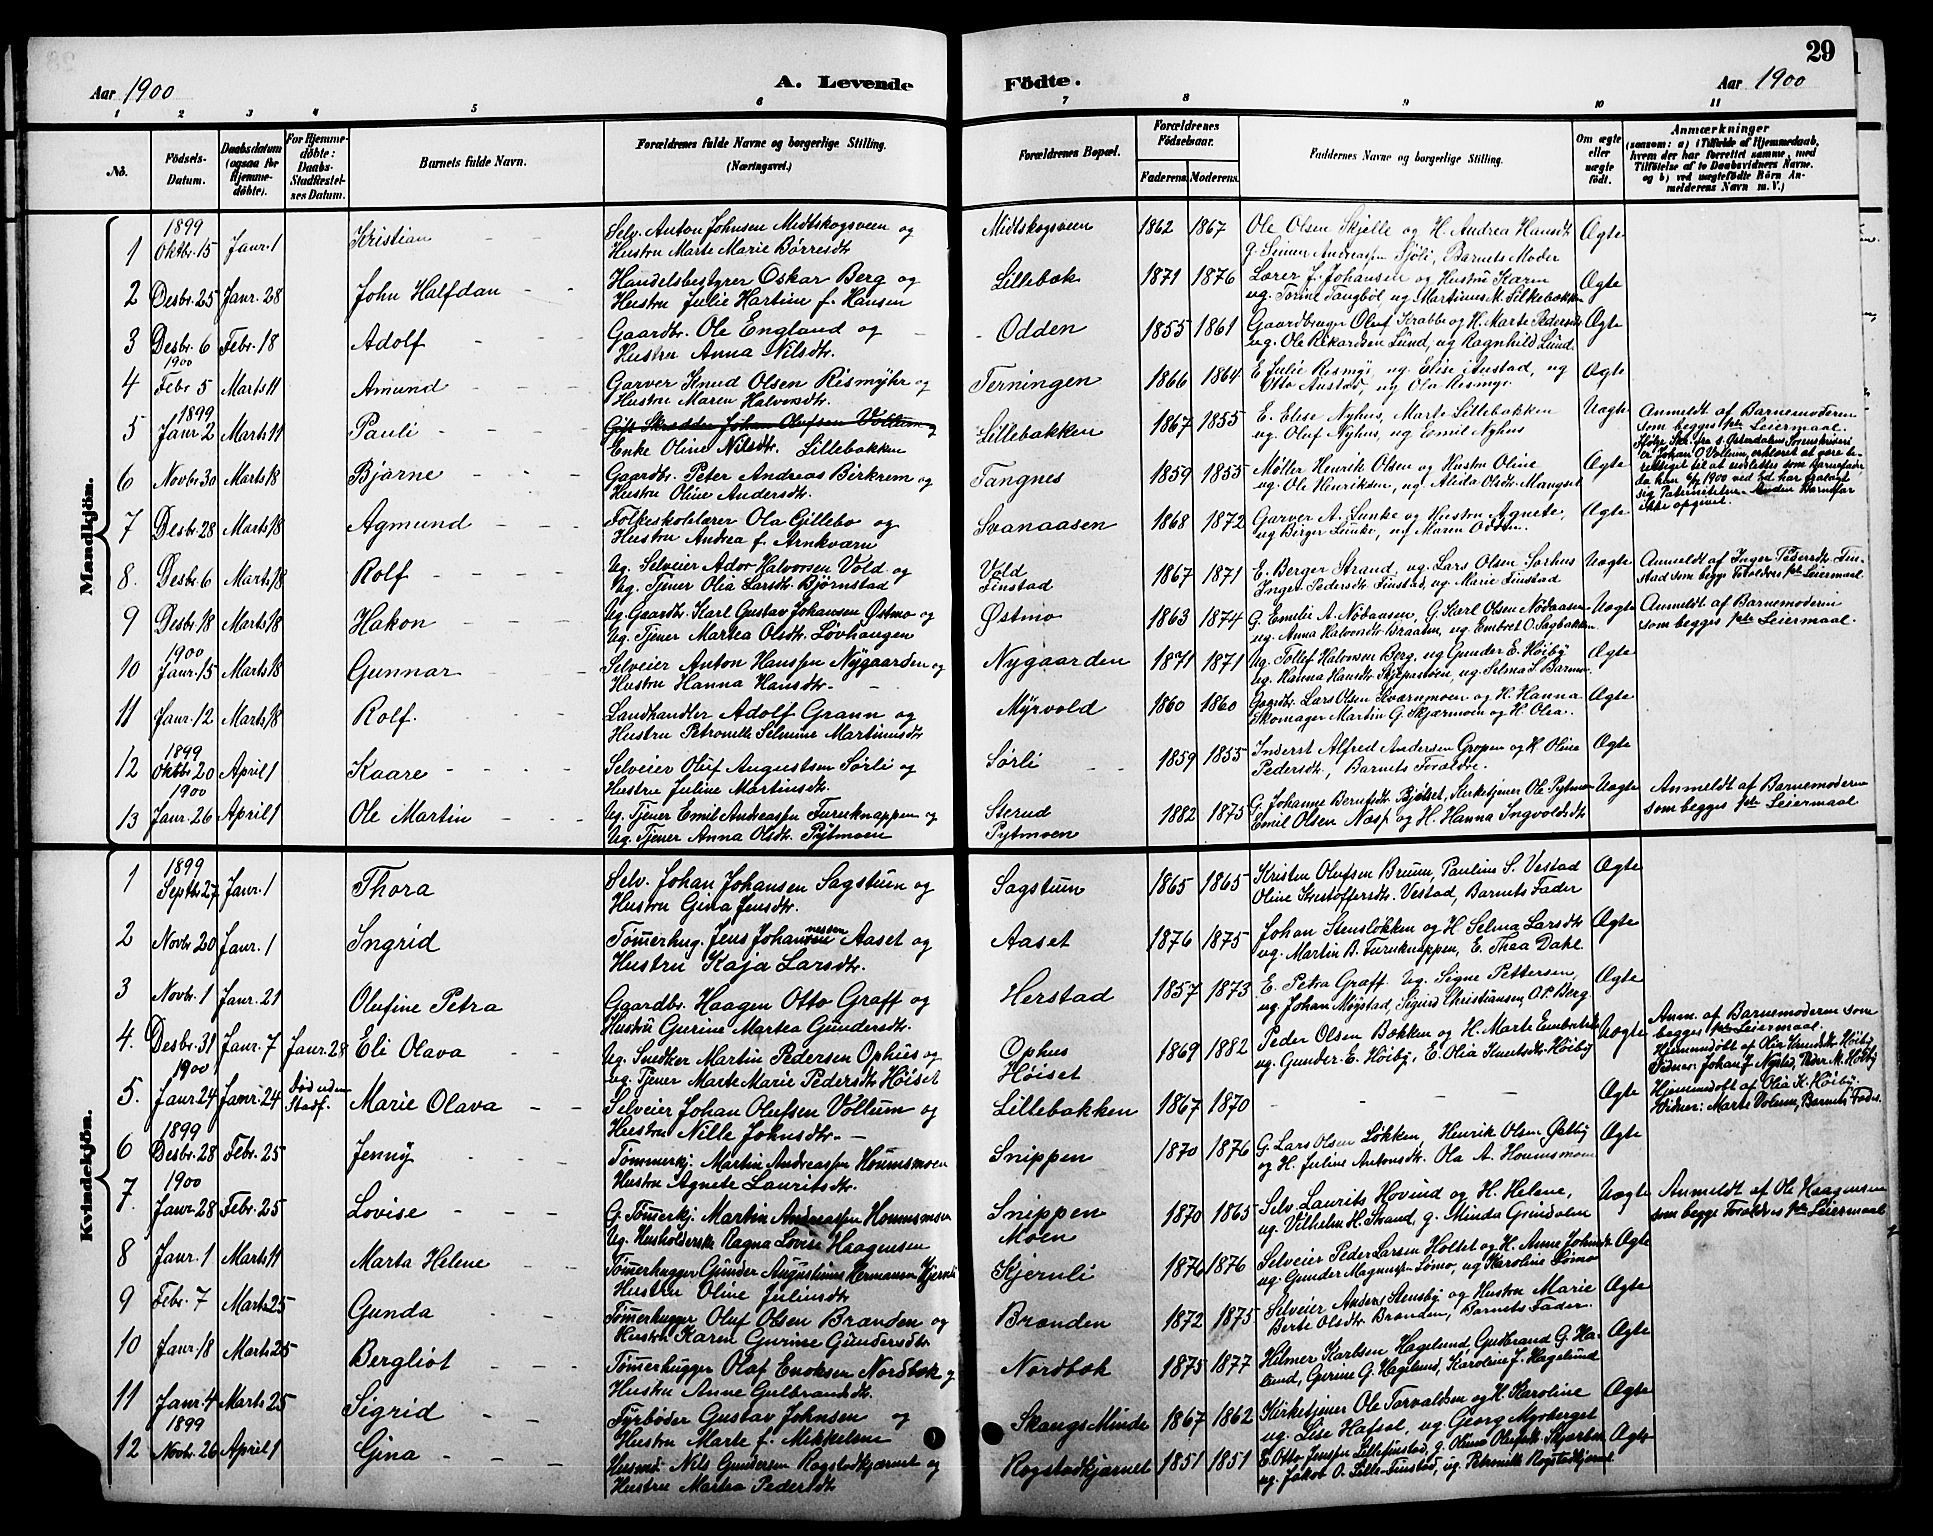 29
Aar 1900
A. Levende Födte.
Aar 1900
1 2 3 4 5 6 7 8 9 10 11
No.
Födsels-Datum.
Daabsdatum (ogsaa for Hjemmedöbte).
For Hjemmedöbte: Daabs-Stadfæstelses Datum.
Barnets fulde Navn.
Forældrenes fulde Navne og borgerlige Stilling. (Næringsvei.)
Forældrenes Bopæl.
Forældrenes Födselsaar.
Faderens. Moderens.
Faddernes Navne og borgerlige Stilling.
Om ægte eller uægte födt.
Anmærkninger (saasom: a) (Tilfælde af Hjemmedaab, hvem der har forrettet samme, med Tilföielse af to Daabsvidners Navne, og b) ved uægtefödte Börn Anmelderens Navn m. V.)
Mandkjön.
1 1899 Oktbr. 15 Janr. 1 Kristian
Selv. Anton Johnsen Midtskogsveen og
Hustru Marte Marie Børresdt.
Midtskogsveen 1862 1867
Ole Olsen Skjelle og H. Andrea Hansdt.
g. Simen Andreassen Sjöli, Barnets Moder
Ægte
2 Desbr. 25 Janr. 28 John Halfdan
Handelsbestyrer Oskar Berg og
Hustru Julie Hartine f. Hansen
Lillebæk 1871 1876
Lærer J. Johansen og Hustru Karen
ug. Torine Tangböl, ug. Martinus M. Lilkebækken
Ægte
3 Desbr. 6 Febr. 18 Adolf
Gaardbr. Ole England og
Hustru Anna Nilsdt.
Odden 1855 1861
Gaardbruger Oluf Krabbe og H. Marte Pedersdt.
ug. Ole Rikardsen Lund, ug Ragnhild Lund.
Ægte
4 1900 Febr 5 Marts 11 Amund
Garver Knud Olsen Rismyhr og
Hustru Maren Halvorsdt.
Terningen 1866 1864
E. Julie Rismyr, ug. Elise Austad, ug
Otto Austad, ug Ola Rismyr
Ægte
5 1899 Janr 2 Marts 11 Pauli
Gift Skrædder Johan Olufsen Vollum og
Enke Oline Nilsdt. Lillebækken
Lillebækken 1867 1855
E. Elise Nyhus, Marte Lillebækken
ug. Oluf Nyhus, ug Emil Nyhus
Uægte
Anmeldt af Barnemoderen
som begges 1ste Leiermaal.
Ifølge Skr. fra s. Østerdalens Sorenskriveri
er Johan O. Vollum, erklæret at være be-
rettiget til at udslettes som Barnefader
da han 6/7 1900 ved Ed har fralagt
sig Paterniteten. Anden Barnefar
ikke opgivet.
6 Novbr. 30 Marts 18 Bjarne
Gaardbr. Peter Andreas Birkrem og
Hustru Oline Andersdt.
Tangnes 1859 1855
Møller Henrik Olsen og Hustru Oline
ug. Ole Henriksen, ug. Alida Olsdt. Mangset
Ægte
7 Desbr. 28 Marts 18 Agmund
Folkeskolelærer Ola Gillebo og
Hustru Andrea f. Arnkværn
Svanaasen 1868 1872
Garver A. Lunke og Hustru Agnete,
ug Berger Lunke, ug Maren Odden.
Ægte
8. Desbr. 6 Marts 18 Rolf
Ug. Selveier Ador Halvorsen Vold og
Ug. Tjener Olia Larsdt. Björnstad
Vold
Finstad
1867 1871
E. Berger Strand, ug. Lars Olsen Sørhus
Inger Pedersdt. Finstad, ug Marie Finstad
Uægte
Anmeldt af Inger Pedersdt. Fin-
stad som begge Forældres 1ste Leiermaal
9 Desbr. 18 Marts 18 Hakon
Ug. Gaardbr. Karl Gustav Johansen Østmo og
Ug. Tjener Martea Olsdt. Lövhaugen
Østmo 1863 1874
G. Emelie A. Nøbaasen, G. Karl Olsen Nøbaasen
ug. Anna Halvorsdt. Braaten, ug Embret O. Sagbakken.
Uægte
Anmeldt af Barnemoderen
som begges 1ste Leiermaal.
10 1900 Janr. 15 Marts 18 Gunnar
Selveier Anton Hanssen Nygaarden og
Hustru Hanna Hansdt.
Nygaarden 1871 1871
Ug. Tollef Halvorsen Berg, ug Gunder E. Höiby
ug. Hanna Hansdt. Skjæpasveen, ug. Selma S. Barmo.
Ægte
11 Janr. 12 Marts 18 Rolf.
Landhandler Adolf Grann og
Hustru Petronelle Selmine Martinusdt.
Myrvold 1860 1860
Gaardbr. Lars Olsen Kværnmoen og H. Hanna
Skomager Martin G. Skjærmoen og H. Olea.
Ægte
12 1899 Oktbr 20 April 1 Kaare
Selveier Oluf Augustsen Sørli og
Hustru Juline Martinsdt.
Sørli 1859 1855
Inderst Alfred Andersen Gropen og H. Oline
Pedersdt., Barnets Forældre.
Ægte
13 1900 Janr. 26 April 1 Ole Martin
Ug. Tjener Emil Andreassen Furuknappen og
Ug. Tjener Anna Olsdt. Pytmoen
Sterud
Pytmoen
1882 1875
G. Johanne Berntsdt. Bjølset, Kirketjener Ole Pytmoen
Emil Olsen Næss og H. Hanna Ingvoldsdt.
Uægte
Anmeldt af Barnemoderen
som begges 1ste Leiermaal
Kvindekjön.
1 1899 Septbr. 27 Janr. 1 Thora
Selv. Johan Johansen Sagstuen og
Hustru Gina Jensdt.
Sagstuen 1865 1865
Kristen Olufsen Bruun, Pauline S. Vestad
Oline Kristoffersdt. Vestad, Barnets Fader
Ægte
2 Novbr. 20 Janr. 1 Ingrid
Tømerhug. Jens Johannessen Aaset og
Hustru Kaja Larsdt.
Aaset 1876 1875
Johan Stensløkken og H. Selma Larsdt.
ug. Martin B. Furuknappen, E. Thea Dahl.
Ægte
3 Novbr. 1 Janr. 21 Olufine Petra
Gaardbr. Haagen Otto Graff og
Hustru Gurine Martea Gundersdt.
Herstad 1857 1873
E. Petra Graff. Ug. Signe Pettersen,
ug Johan Møystad, Sigurd Christiansen, O. P. Berg
Ægte
4. Desbr. 31 Janr. 7 Janr. 28 Eli Olava
Ug. Snedker Martin Pedersen Ophus og
Ug. Tjener Marte Marie Pedersdt. Höiset
Ophus
Höiset
1869 1882
Peder Olsen Bækken og H. Marte Embretsdt.
ug. Gunder E. Höiby, E. Olia Knutsdt. Höiby
Uægte
Anm. af Barnemoderen som
begges 1ste Leiermaal.
Hjemmedöbt af Olia Knutsdt. Höiby
Vidner: Johan J. Nysted, Peder M. Höiby
5. 1900 Janr. 24 Janr. 24 Död uden Stadf. Marie Olava
Selveier Johan Olufsen Vollum og
Hustru Nille Johnsdt.
Lillebækken 1867 1870
Ægte
Hjemmedöbt af Olia K. Höiby.
Vidner: Marte Volum, Barnets Fader.
6 1899 Desbr. 28 Febr. 25 Jenny
Tømmerhj. Martin Andreassen Hommsmoen
Hustru Agnete Lauritsdt.
Snippen 1870 1876
G. Lars Olsen Løkken, Henrik Olsen Østby
og H. Juline Antonsdt. Ola A. Hommsmoen
Ægte
7. 1900 Janr. 28 Febr. 25 Lovise
G. Tømerkj. Martin Andreassen Hommsmoen
Ug. Husholderske Ragna Lovise Haagensen
Snippen
Moen
1870 1865
Selv. Laurits Hovind og H. Helene,
ug. Vilhelm H. Strand, g. Minda Grindalen
Uægte
Anmeldt af Ole Haagensen
som begge Forældres 1ste Leiermaal
8 Janr. 1 Marts 11 Marta Helene
Tømerhugger Gunder Augustinus Hermansen Kjernli
Hustru Oline Juliusdt.
Kjernli 1876 1876
Selveier Peder Larsen Holtet og H. Anne Johnsdt.
ug. Gunder Magnussen Lømo, ug Karoline Lømo
Ægte
9 Febr. 7 Marts 25 Gunda
Tømerhugger Oluf Olsen Brænden og
Hustru Karen Gurine Gundersdt.
Brænden 1872 1875
Selveier Anders Stensby og Hustru Marie
Berte Olsdt. Brænden, Barnets Fader.
Ægte
10 Janr. 18 Marts 25 Bergliot
Tømerhugger Olaf Enoksen Nordbæk og
Hustru Anne Gulbrandsdt.
Nordbæk 1875 1877
Hilmer Karlsen Hagelund Gudbrand G. Ha-
lund, Gurine G. Hagelund, Karoline J. Hagelund
Ægte
11 Janr. 4 Marts 25 Sigrid
Fyrbøder Gustav Johnsen og
Hustru Marte f. Mikkelsen
Skaugs Minde 1867 1862
Kirketjener Ole Torvaldsen og H. Karoline
ug. Lise Hafsal, ug. Georg Myrberget
Ægte
12 1899 Novbr. 26 April 1 Gina
Husmd. Nils Gundersen Rogstadkjærnet og
Hustru Martea Pedersdt.
Rogstadkjærnet 1851 1851
E. Otto Jenssen Lillefinstad, g. Olina Olufsdt. Skjærbæk
ug. Jakob O. Lille-Finstad, ug. Petronille Rogstadkjærnet
Ægte